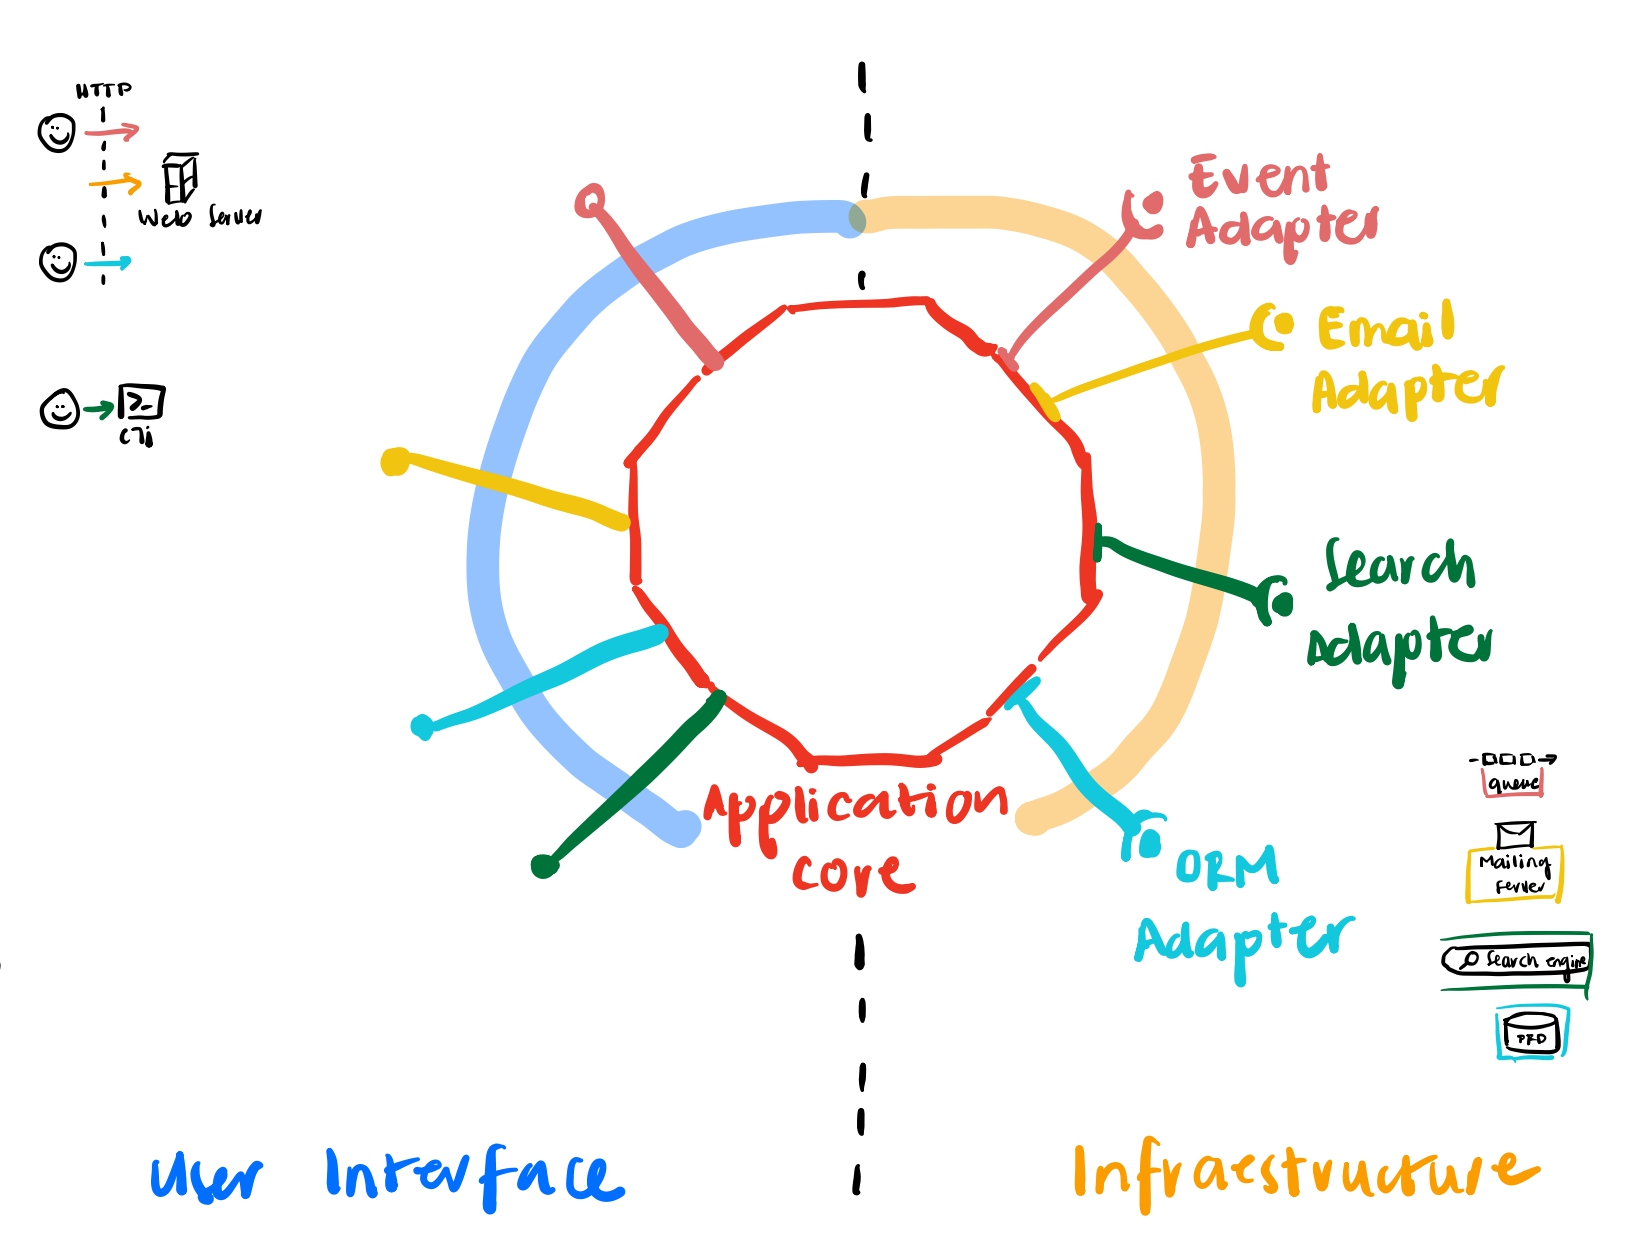 HTTP
Web Server
CLi
Event
Adapter
Email
Adapter
Search
Adapter
Application
Core
ORM
Adapter
queue
Mailing
Server
Search engine
User Interface
Infraestructure